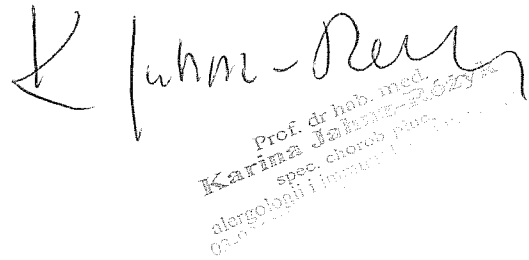 K Jahnz-Róży
Prof. dr hab. med.
Karina Jahnz-Różyk
spec. chorób płuc,
alergologii i